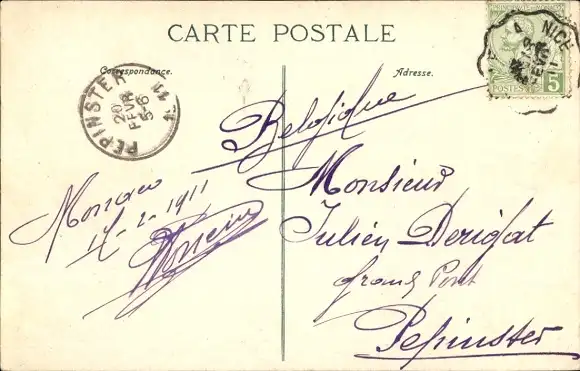 CARTE POSTALE
Correspondance.
Adresse.
NICE
POSTES 5
PEPINSTER
20
FEVR
5-6
11
Belgique
Monsieur
Julien Derigat
Grand Pont
Pepinster
Monaco
17-2-1911